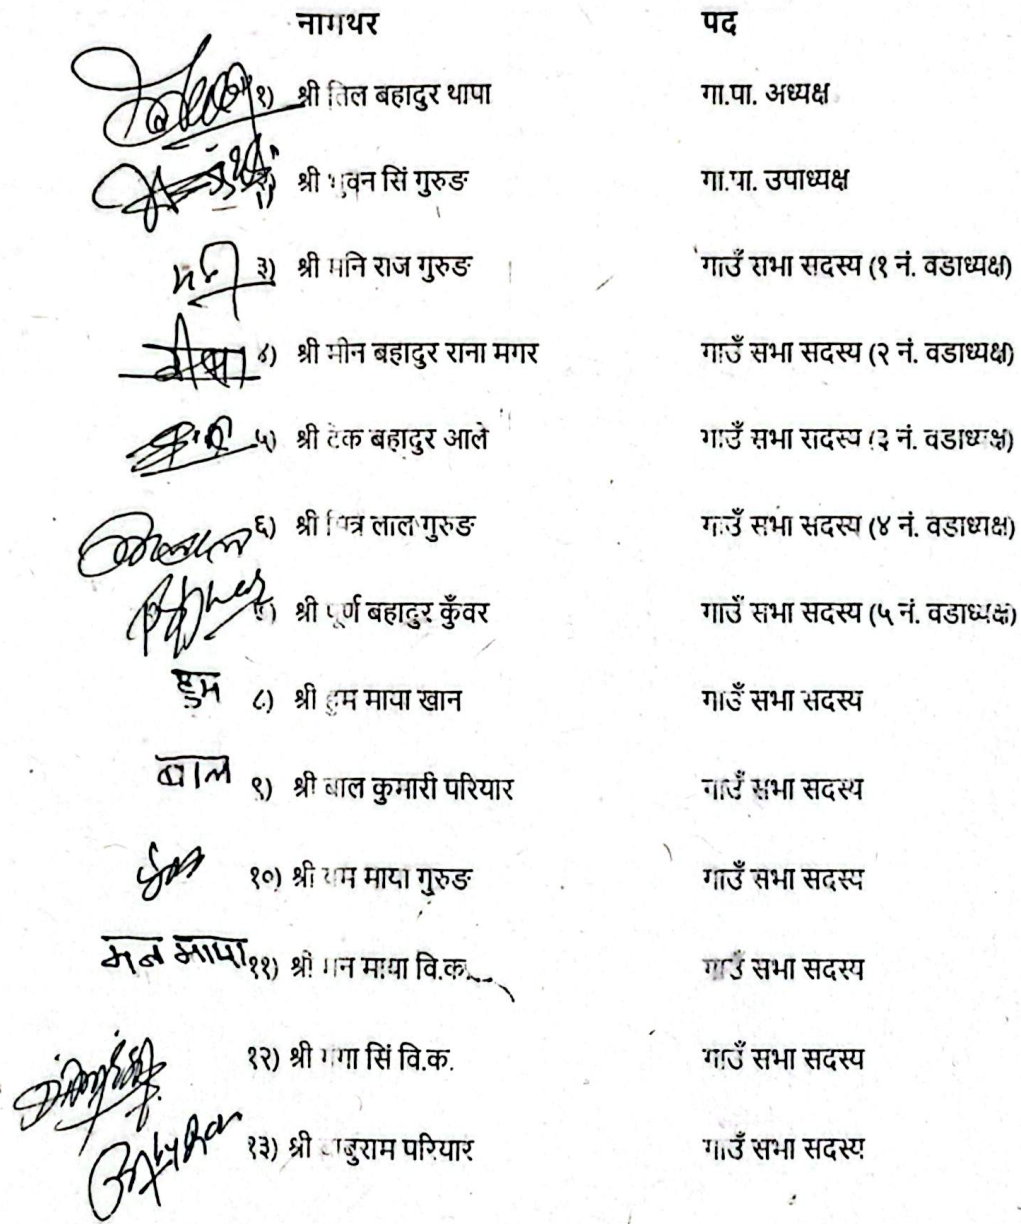 नागथर पद
१) श्री तिल बहादुर थापा गा.पा. अध्यक्ष
श्री भुवन सिं गुरुङ गा.पा. उपाध्यक्ष
३) श्री मनि राज गुरुङ गाउँ सभा सदस्य (१ नं. वडाध्यक्ष)
४) श्री मीन बहादुर राना मगर गाउँ सभा सदस्य (२ नं. वडाध्यक्ष)
५) श्री टेक बहादुर आले गाउँ सभा सदस्य (३ नं. वडाध्यक्ष)
६) श्री लाल गुरुङ गाउँ सभा सदस्य (४ नं. वडाध्यक्ष)
श्री पूर्ण बहादुर कुँवर गाउँ सभा सदस्य (५ नं. वडाध्यक्ष)
हुम ८) श्री हुम माया खान गाउँ सभा सदस्य
बाल ९) श्री बाल कुमारी परियार गाउँ सभा सदस्य
१०) श्री माया गुरुङ गाउँ सभा सदस्य
मन माया ११) श्री मन माया वि.क. गाउँ सभा सदस्य
१२) श्री गंगा सिं वि.क. गाउँ सभा सदस्य
१३) श्री बाबुराम परियार गाउँ सभा सदस्य